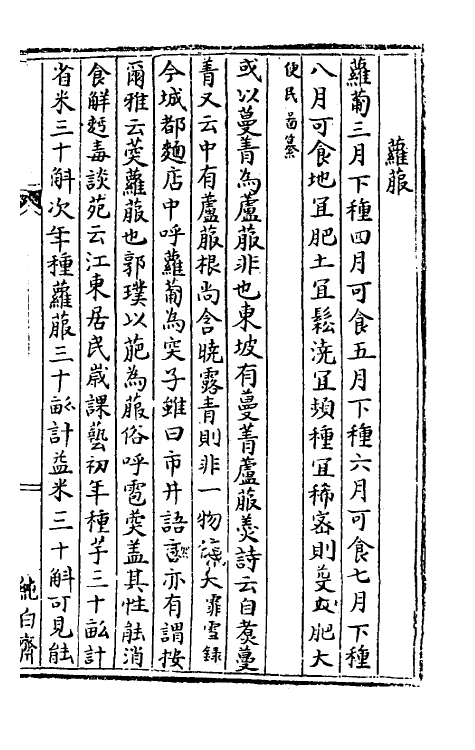 蘿菔
蘿蔔三月下種四月可食五月下種六月可食七月下種
八月可食地宜肥土宜鬆澆宜頻種宜稀密則芟之肥大
便民啚纂
或以蔓菁為蘆菔非也東坡有蔓菁蘆菔羹詩云自煮蔓
菁又云中有蘆菔根尚含曉露青則非一物 天霏雪録
今城都麵店中呼蘿蔔為突子雖曰市井語言亦有謂按
爾雅云葖蘿菔也郭璞以萉為菔俗呼雹葖盖其性能消
食解麪毒談苑云江東居民歲課藝初年種芋三十畝計
省米三十斛次年種蘿菔三十畝計益米三十斛可見能
純白齋